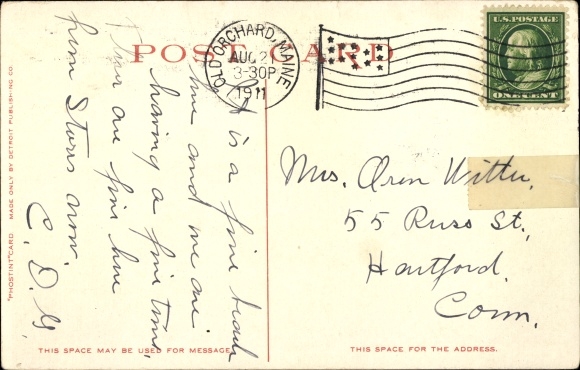 POST CARD
OLD ORCHARD, MAINE
AUG 2
3-30P
1911
U.S. POSTAGE
ONE CENT
It is a fine beach
here and we are
having a fine time.
are fine here
from Storrs now.
C. D. G.
Mrs. Oren Witter,
55 Russ St.,
Hartford.
Conn.
"PHOSTINT" CARD MADE ONLY BY DETROIT PUBLISHING CO.
THIS SPACE MAY BE USED FOR MESSAGE
THIS SPACE FOR THE ADDRESS.